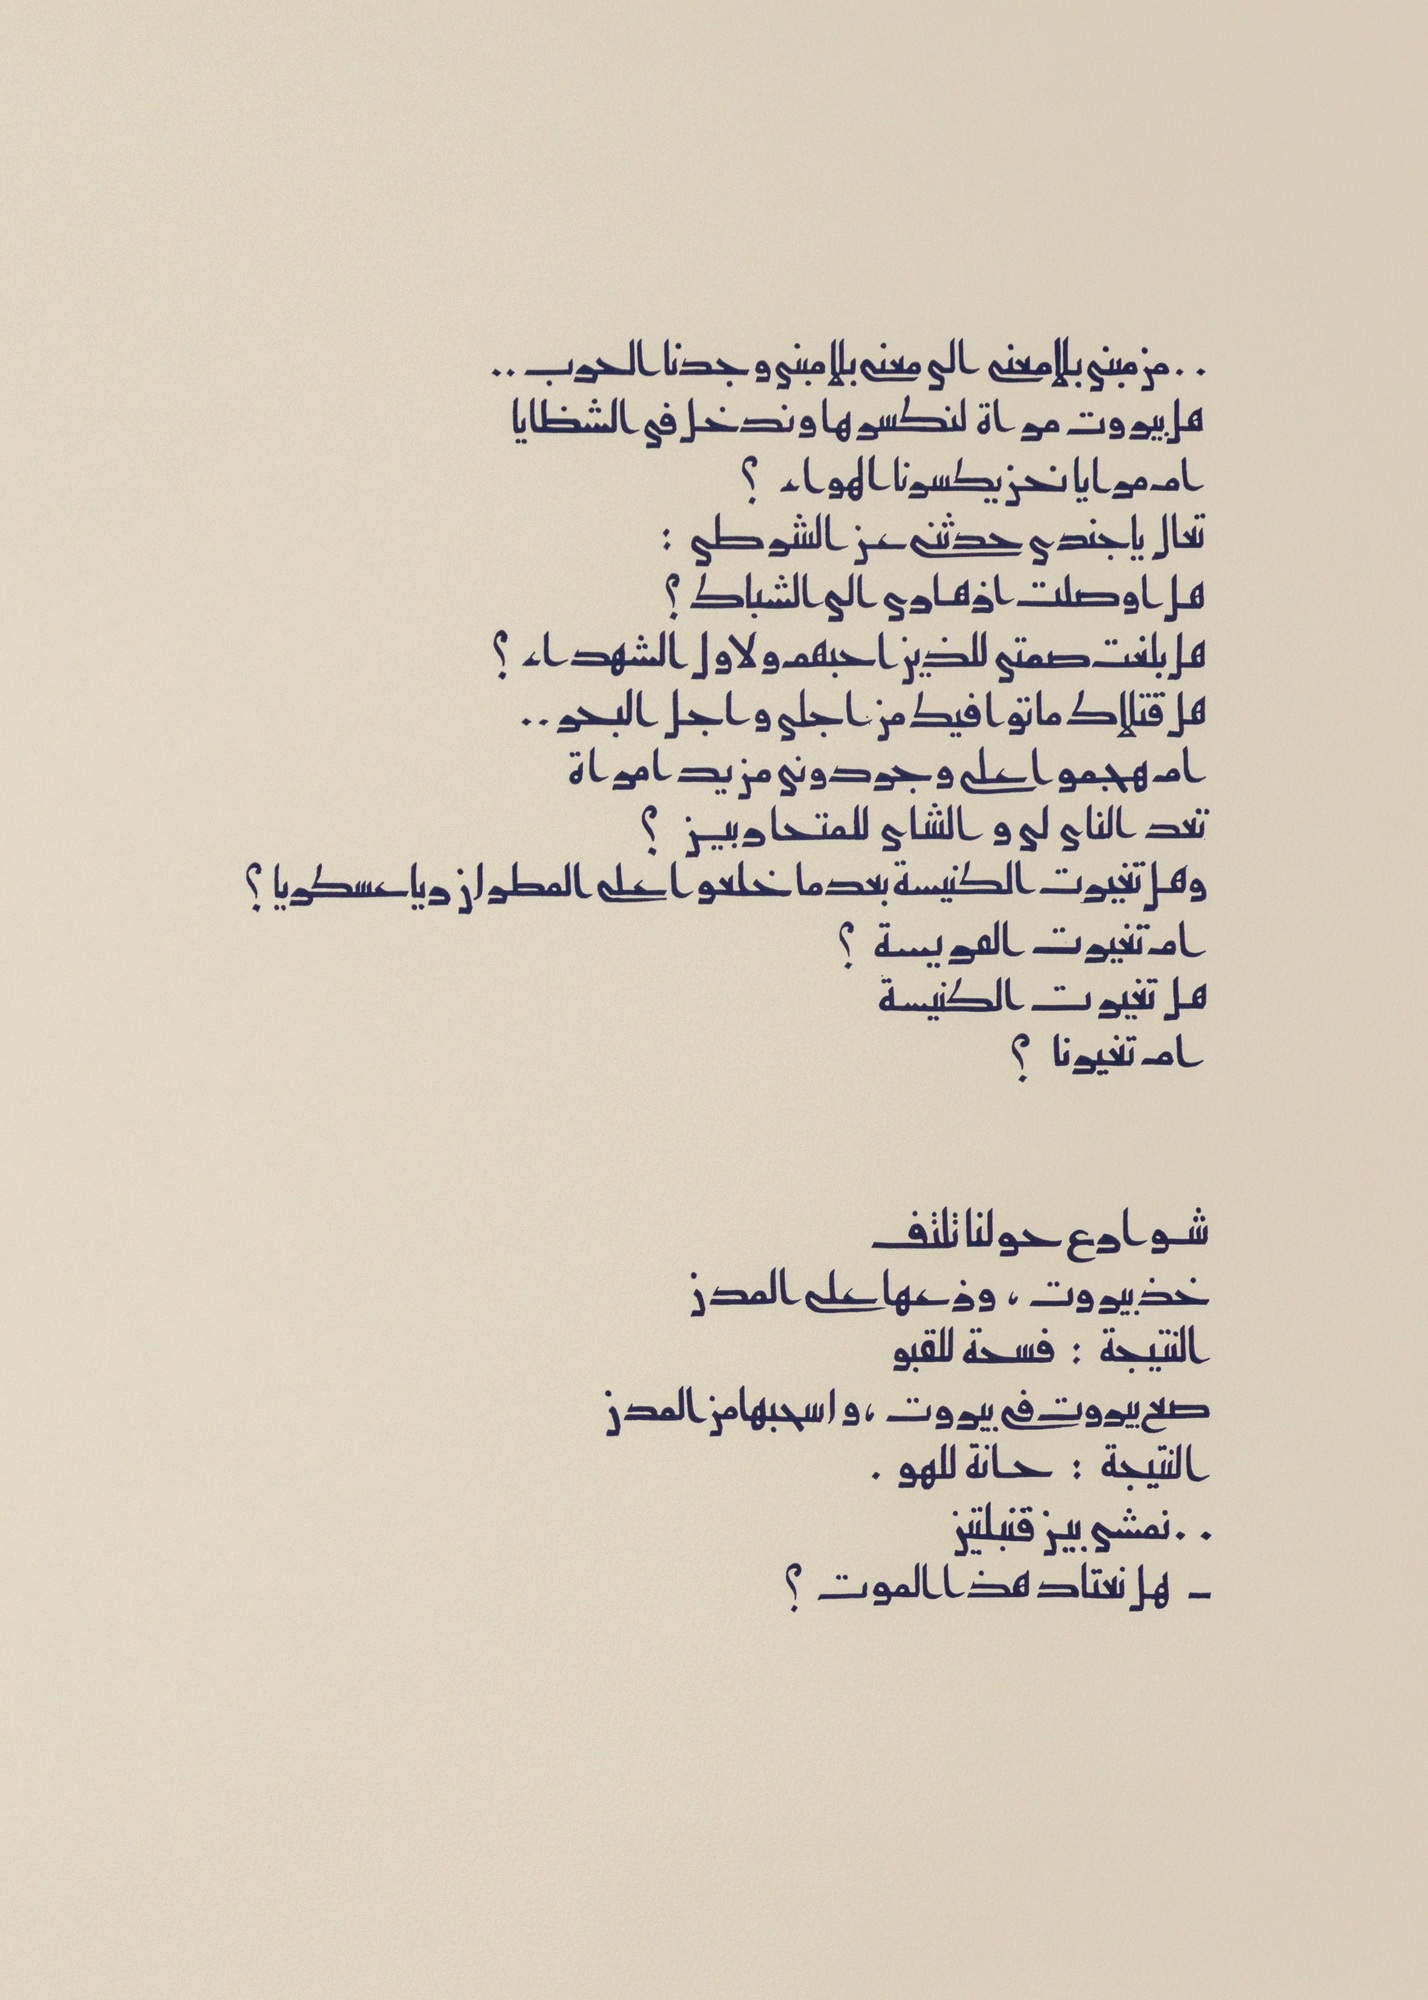 ..من مبنى بلا معنى الى معنى بلا مبنى وجدنا الحرب..
هل بيروت مراة لنكسرها وندخل في الشظايا
ام مرايا نحن يكسرنا الهواء ؟
تعال يا جندي حدثني عن الشرطي :
هل اوصلت ازهاري الى الشباك ؟
هل بلغت صمتي للذين احبهم ولاول الشهداء ؟
هل قتلاك ماتوا فيك من اجلي واجل البحر..
ام هجموا علي وجردوني من يد امراة
تعد الشاي لي و الناي للمتحاربين ؟
وهل تغيرت الكنيسة بعدما خلعوا على المطران زيا عسكريا ؟
ام تغيرت الفريسة ؟
هل تغيرت الكنيسة
ام تغيرنا ؟
شوارع حولنا تلتف
خذ بيروت ، وزعها على المدن
النتيجة : فسحة للقبو
ضع بيروت في بيروت ، واسحبها من المدن
النتيجة : حانة للهو .
..نمشي بين قنبلتين
- هل نعتاد هذا الموت ؟